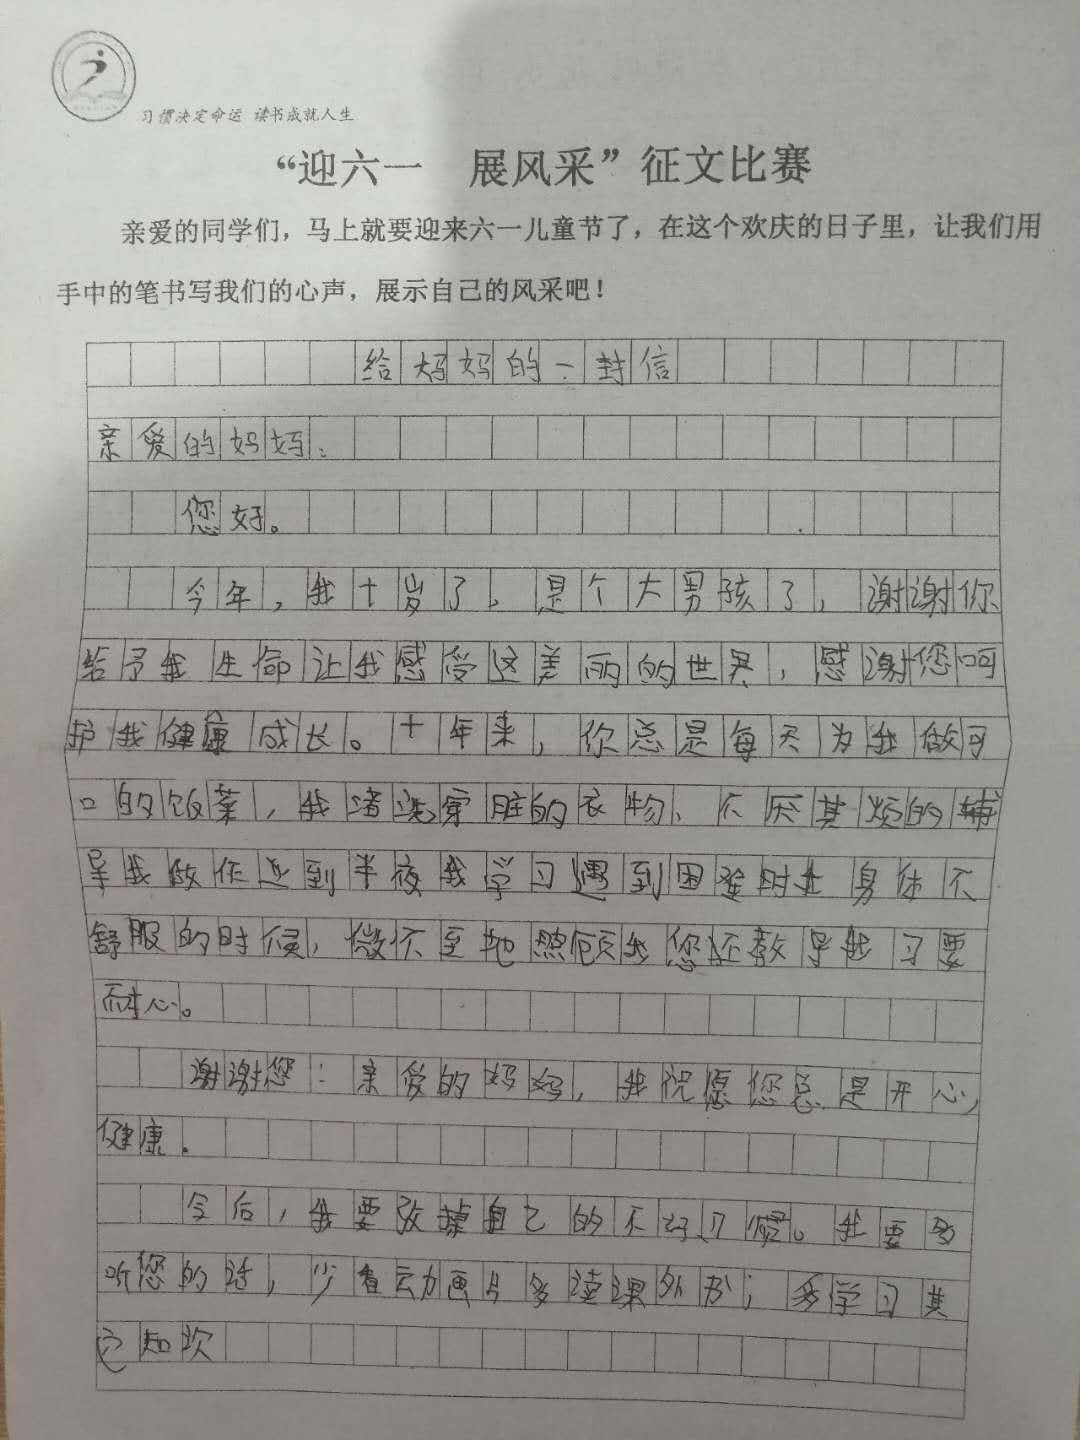 习惯决定命运 读书成就人生
“迎六一 展风采”征文比赛
亲爱的同学们，马上就要迎来六一儿童节了，在这个欢庆的日子里，让我们用
手中的笔书写我们的心声，展示自己的风采吧！
给妈妈的一封信
亲爱的妈妈：
您好。
今年，我十岁了。是个大男孩了，谢谢你
给予我生命让我感受这美丽的世界，感谢您呵
护我健康成长。十年来，你总是每天为我做可
口的饭菜，我洗穿脏的衣物、不厌其烦的辅
导我做作到半夜我学习遇到困难时 身体不
舒服的时候，微不至地照顾我您还教导我习要
耐心。
谢谢您：亲爱的妈妈，我祝愿您总是开心，
健康。
今后，我要改掉自己的不好习惯。我要多
听您的话，少看动画片多读课外书；多学习其
它知次